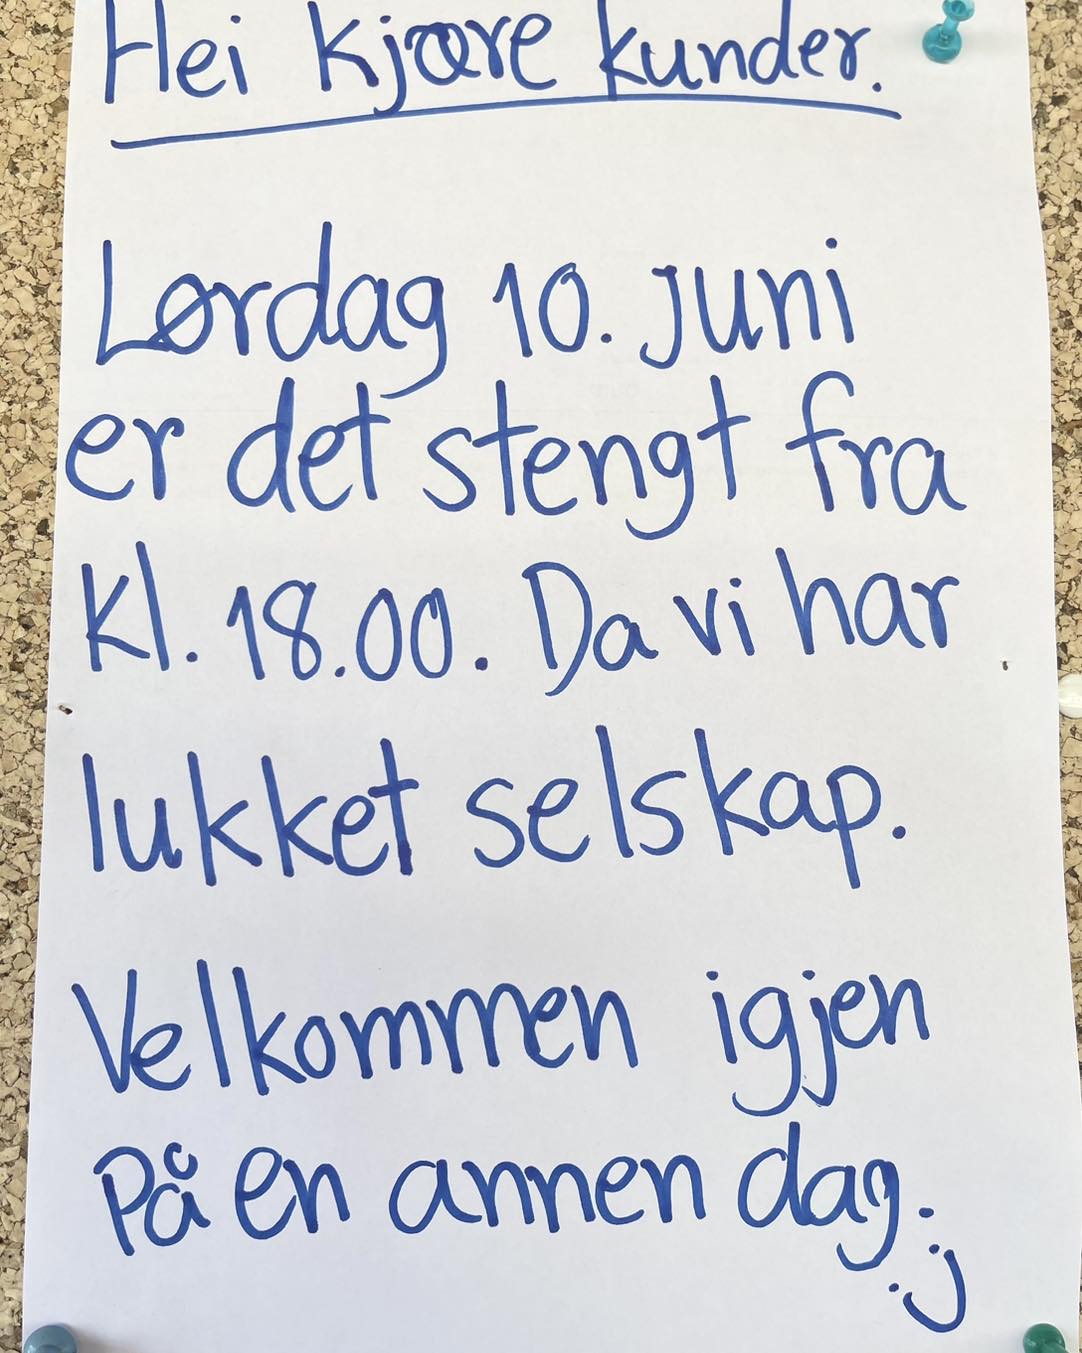 Hei kjære kunder.
Lørdag 10. juni
er det stengt fra
Kl. 18.00. Da vi har
lukket selskap.
Velkommen igjen
På en annen dag.
:)